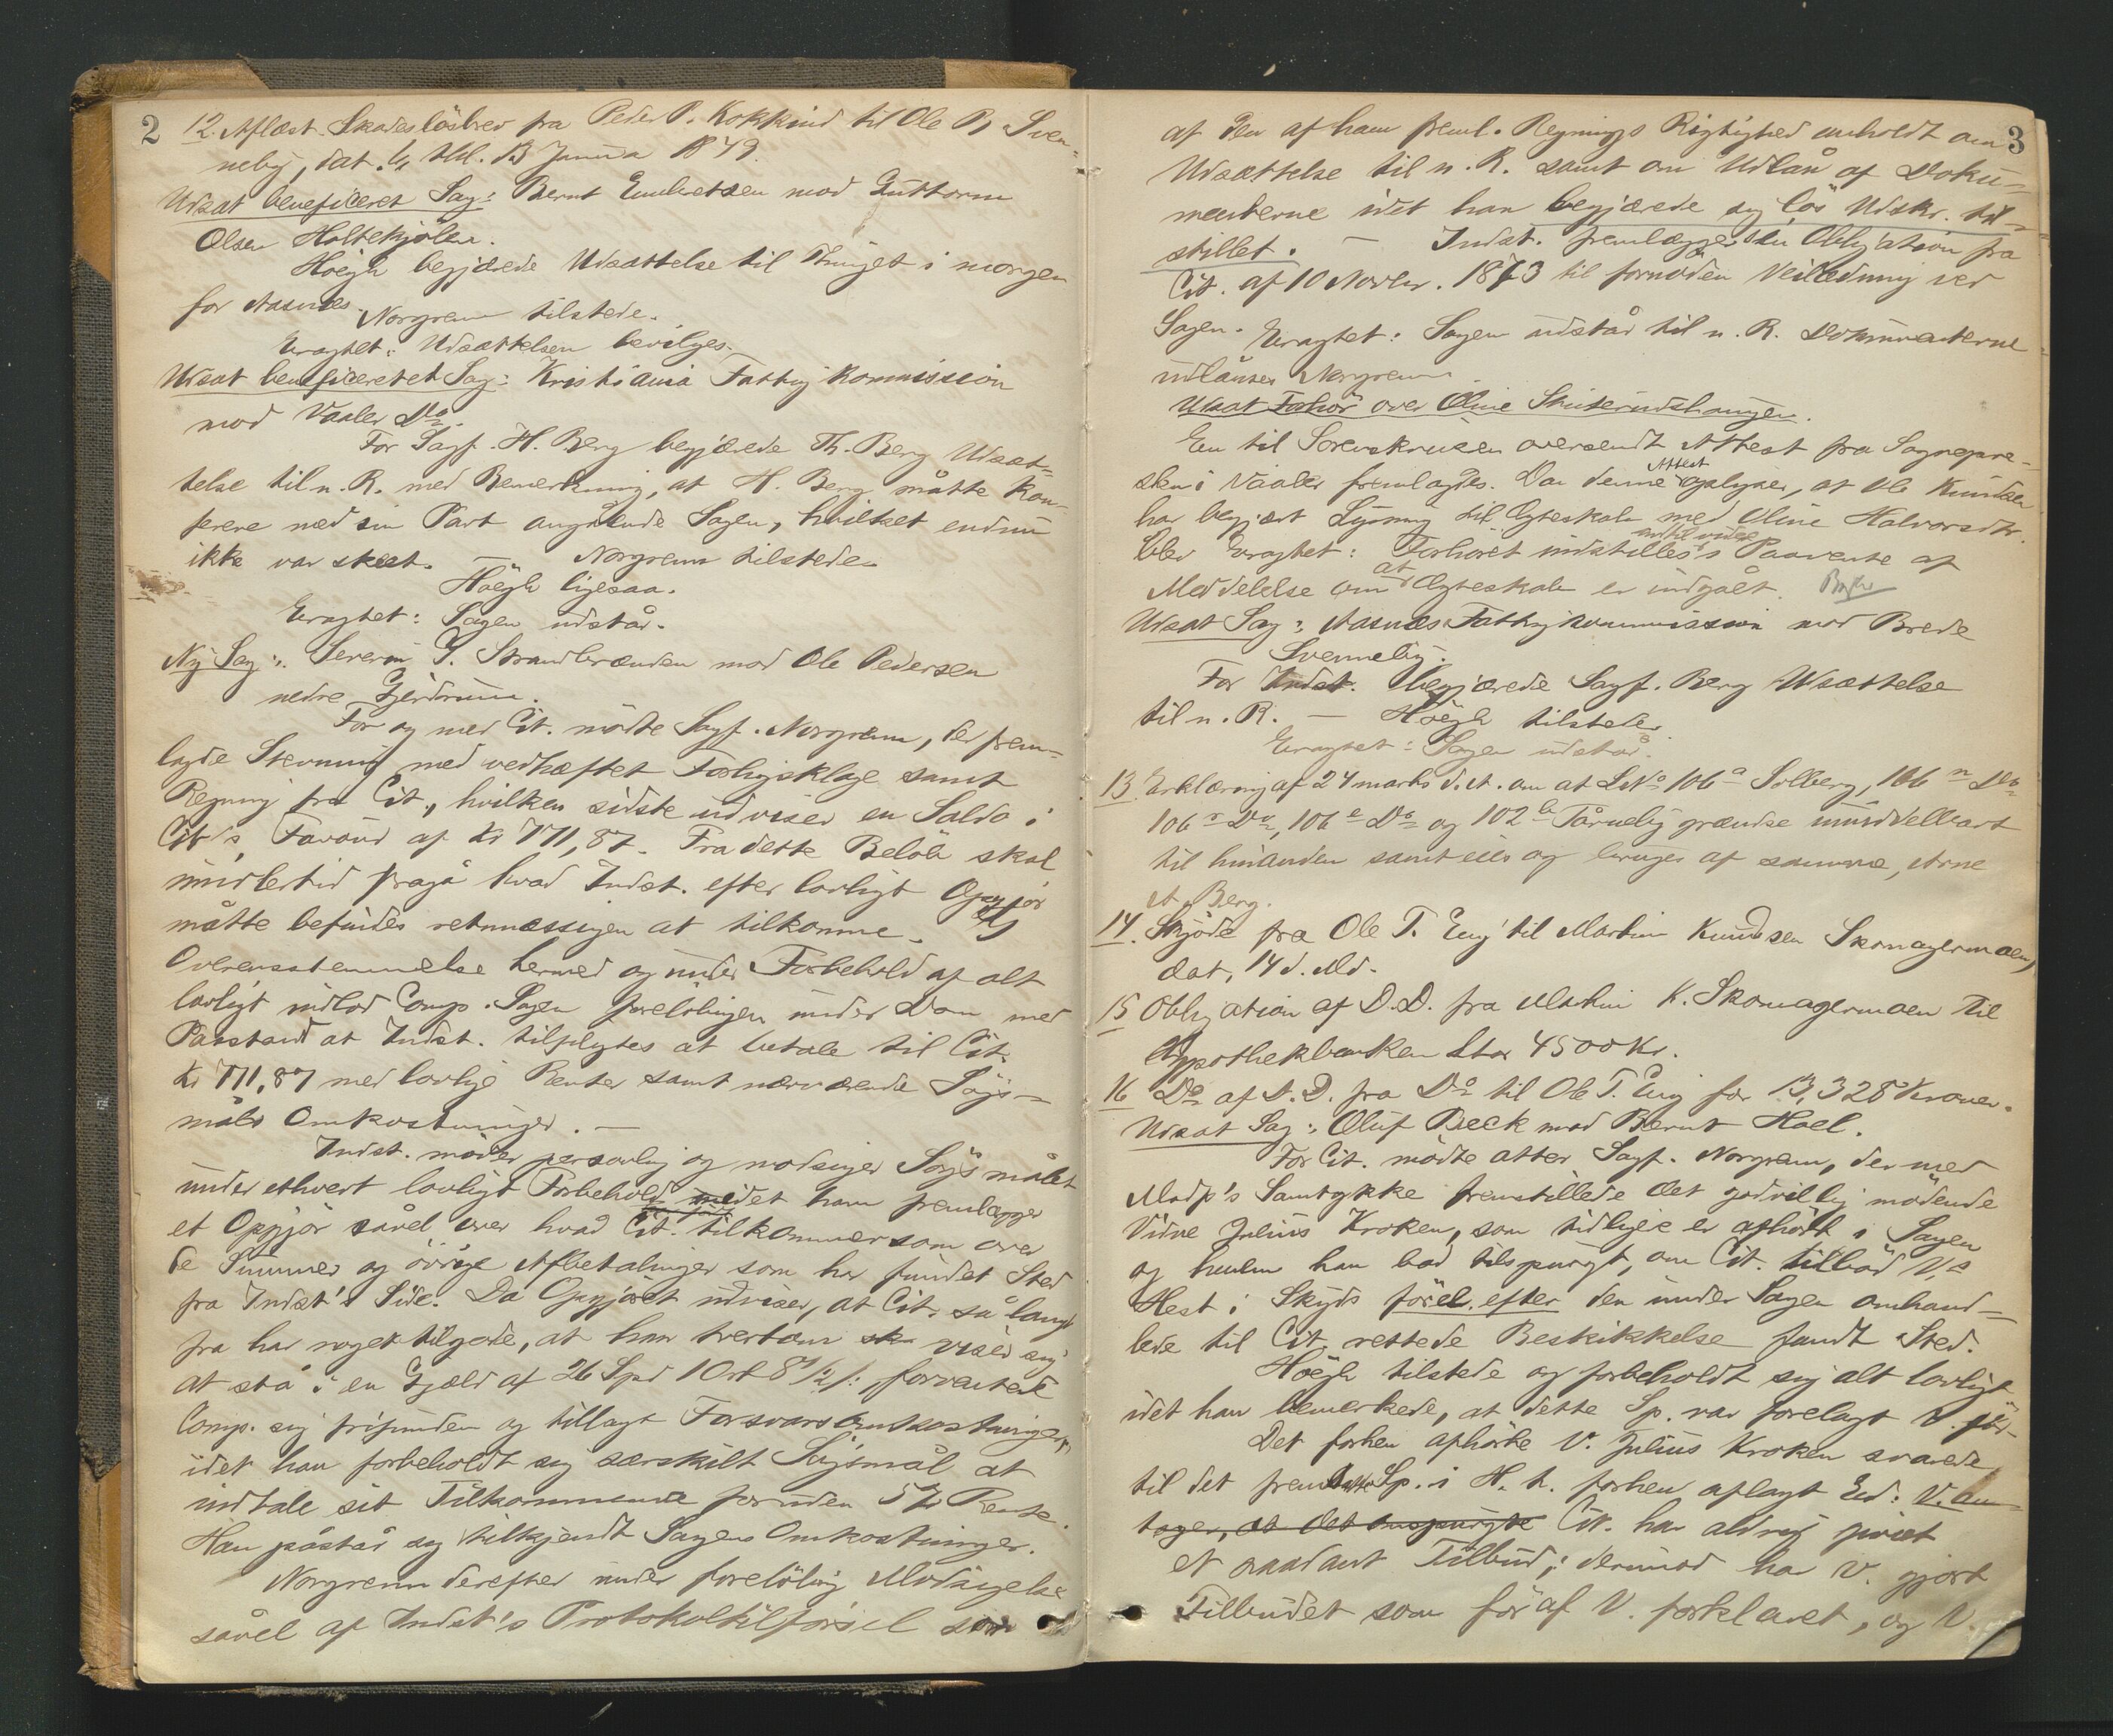 2
12. Aflæst Skadesløsbrev fra Peder P. Kokkind til Ole P. Sven-
neby, dat. Januar 1879.
Udsat beneficeret Sag: Bernt Embretsen mod Guttorm
Olsen Holtekjølen.
Høegh begjærede Udsættelse til Thinget i morgen
for Aasnes. Norgrenn tilstede.
Eragtet: Udsættelsen bevilges.
Udsat beneficeretet Sag: Kristiania Fattigkommission
mod Vaaler Do
For Sagf. H. Berg begjærede Th. Berg Udsæt-
telse til n. R. med Bemerkning, at H. Berg måtte kon-
ferere med sin Part angående Sagen, hvilket endnu
ikke var skeet. — Norgrenn tilstede.
Høegh ligesaa.
Eragtet: Sagen udstår.
Ny Sag: Severin G. Strandbrænden mod Ole Pedersen
nedre Gjerdrum.
For og med Cit. mødte Sagf. Norgrenn, der frem-
lagde Stevning med vedhæftet Forligsklage samt
Regning fra Cit., hvilken sidste udviser en Saldo i
Cit's Favør af Kr 771,87. Fra dette Beløb skal
imidlertid fragå hvad Indst. efter lovligt Opgjør
måtte befindes retmæssigen at tilkomme. I
Overensstemmelse hermed og under Forbehold af alt
lovligt indlod Comp. Sagen foreløbigen under Dom med
Paastand at Indst. tilpligtes at betale til Cit.
Kr 771,87 med lovlige Renter samt nærværende Søgs-
måls Omkostninger. —
Indst. møder personlig og modsiger Søgsmålet
under ethvert lovligt Forbehold idet han fremlægger
et Opgjør såvel over hvad Cit. tilkommer som over
de Summer og øvrige Afbetalinger som har fundet Sted
fra Indst's Side. Da Opgjøret udviser, at Cit. så langt
fra har noget tilgode, at han tvertom sk viser sig
at stå i en Gjæld af 26 Spd 1 Ort 8 1/2 /: forventede
Comp. sig frifunden og tillagt Forsvarsomkostninger,
idet han forbeholdt sig særskilt Søgsmål at
indtale sit Tilkommende foruden 5% Rente.
Han påstår sig tilkjendt Sagens Omkostninger.
Norgrenn derefter under foreløbig Modsigelse
såvel af Indst's Protokoltilførsel som
3
af den af ham freml. Regnings Rigtighed anholdt om
Udsættelse til n. R. samt om Udlån af Doku-
menterne idet han begjærede sig løs Udskr. til-
stillet. — Indst. fremlægger en Obligation fra
Cit. af 10 Novbr. 1873 til fornøden Veiledning ved
Sagen. Eragtet: Sagen udstår til n. R. Dokumenterne
udlånes Norgrenn.
Udsat Forhør over Oline Skuterudshaugen.
En til Sorenskriveren oversendt Attest fra Sognepre-
sten i Vaaler fremlagdes. Da denne Attest oplyser, at Ole Knudsen
har begjært Lysning til Ægteskab med Oline Halvorsdtr.
blev Eragtet: Forhøret indstilles indtil videre i Paavente af
Meddelelse om at Ægteskab er indgået.
Udsat Sag: Aasnes Fattigkommission mod Brede
Svenneby.
For Indst. begjærede Sagf. Berg Udsættelse
til n. R. — Høegh tilstede.
Eragtet: Sagen udstår.
13. Erklæring af 24 marts d. A. om at LNo 106 a Solberg, 106 n Do
106 Do, 106 e Do og 102 b Tårneby grændse umiddelbart
til hinanden samt eies og bruges af samme, Arne
A. Berg.
14. Skjøde fra Ole T. Eng til Martin Knudsen Skomagermoen,
dat. 14 d. Md.
15 Obligation af D. D. fra Martin K. Skomagermoen til
Hypothekbanken stor 4500 Kr.
16 Do af D. D. fra Do til Ole T. Eng for 13,328 Kroner.
Udsat Sag: Oluf Beck mod Bernt Hoel.
For Cit. mødte atter Sagf. Norgrenn, der med
Modp's Samtykke fremstillede det godvillig mødende
Vidne Julius Kroken, som tidligere er afhørt i Sagen
og hvem han bad tilspurgt, om Cit. tilbød V.s
Hest i Skyds før el. efter den under Sagen omhand-
lede til Cit. rettede Beskikkelse fandt Sted.
Høegh tilstede og forbeholdt sig alt lovligt
idet han bemerkede, at dette Sp. var forelagt V. før.
Det forhen afhørte V. Julius Kroken svarede
til det fremsatte Sp. i H. t. forhen aflagt Ed: V. an-
tager, at det omspurgte Cit. har aldrig givet
et saadant Tilbud; derimod har V. gjort
Tilbudet som før af V. forklaret, og V.